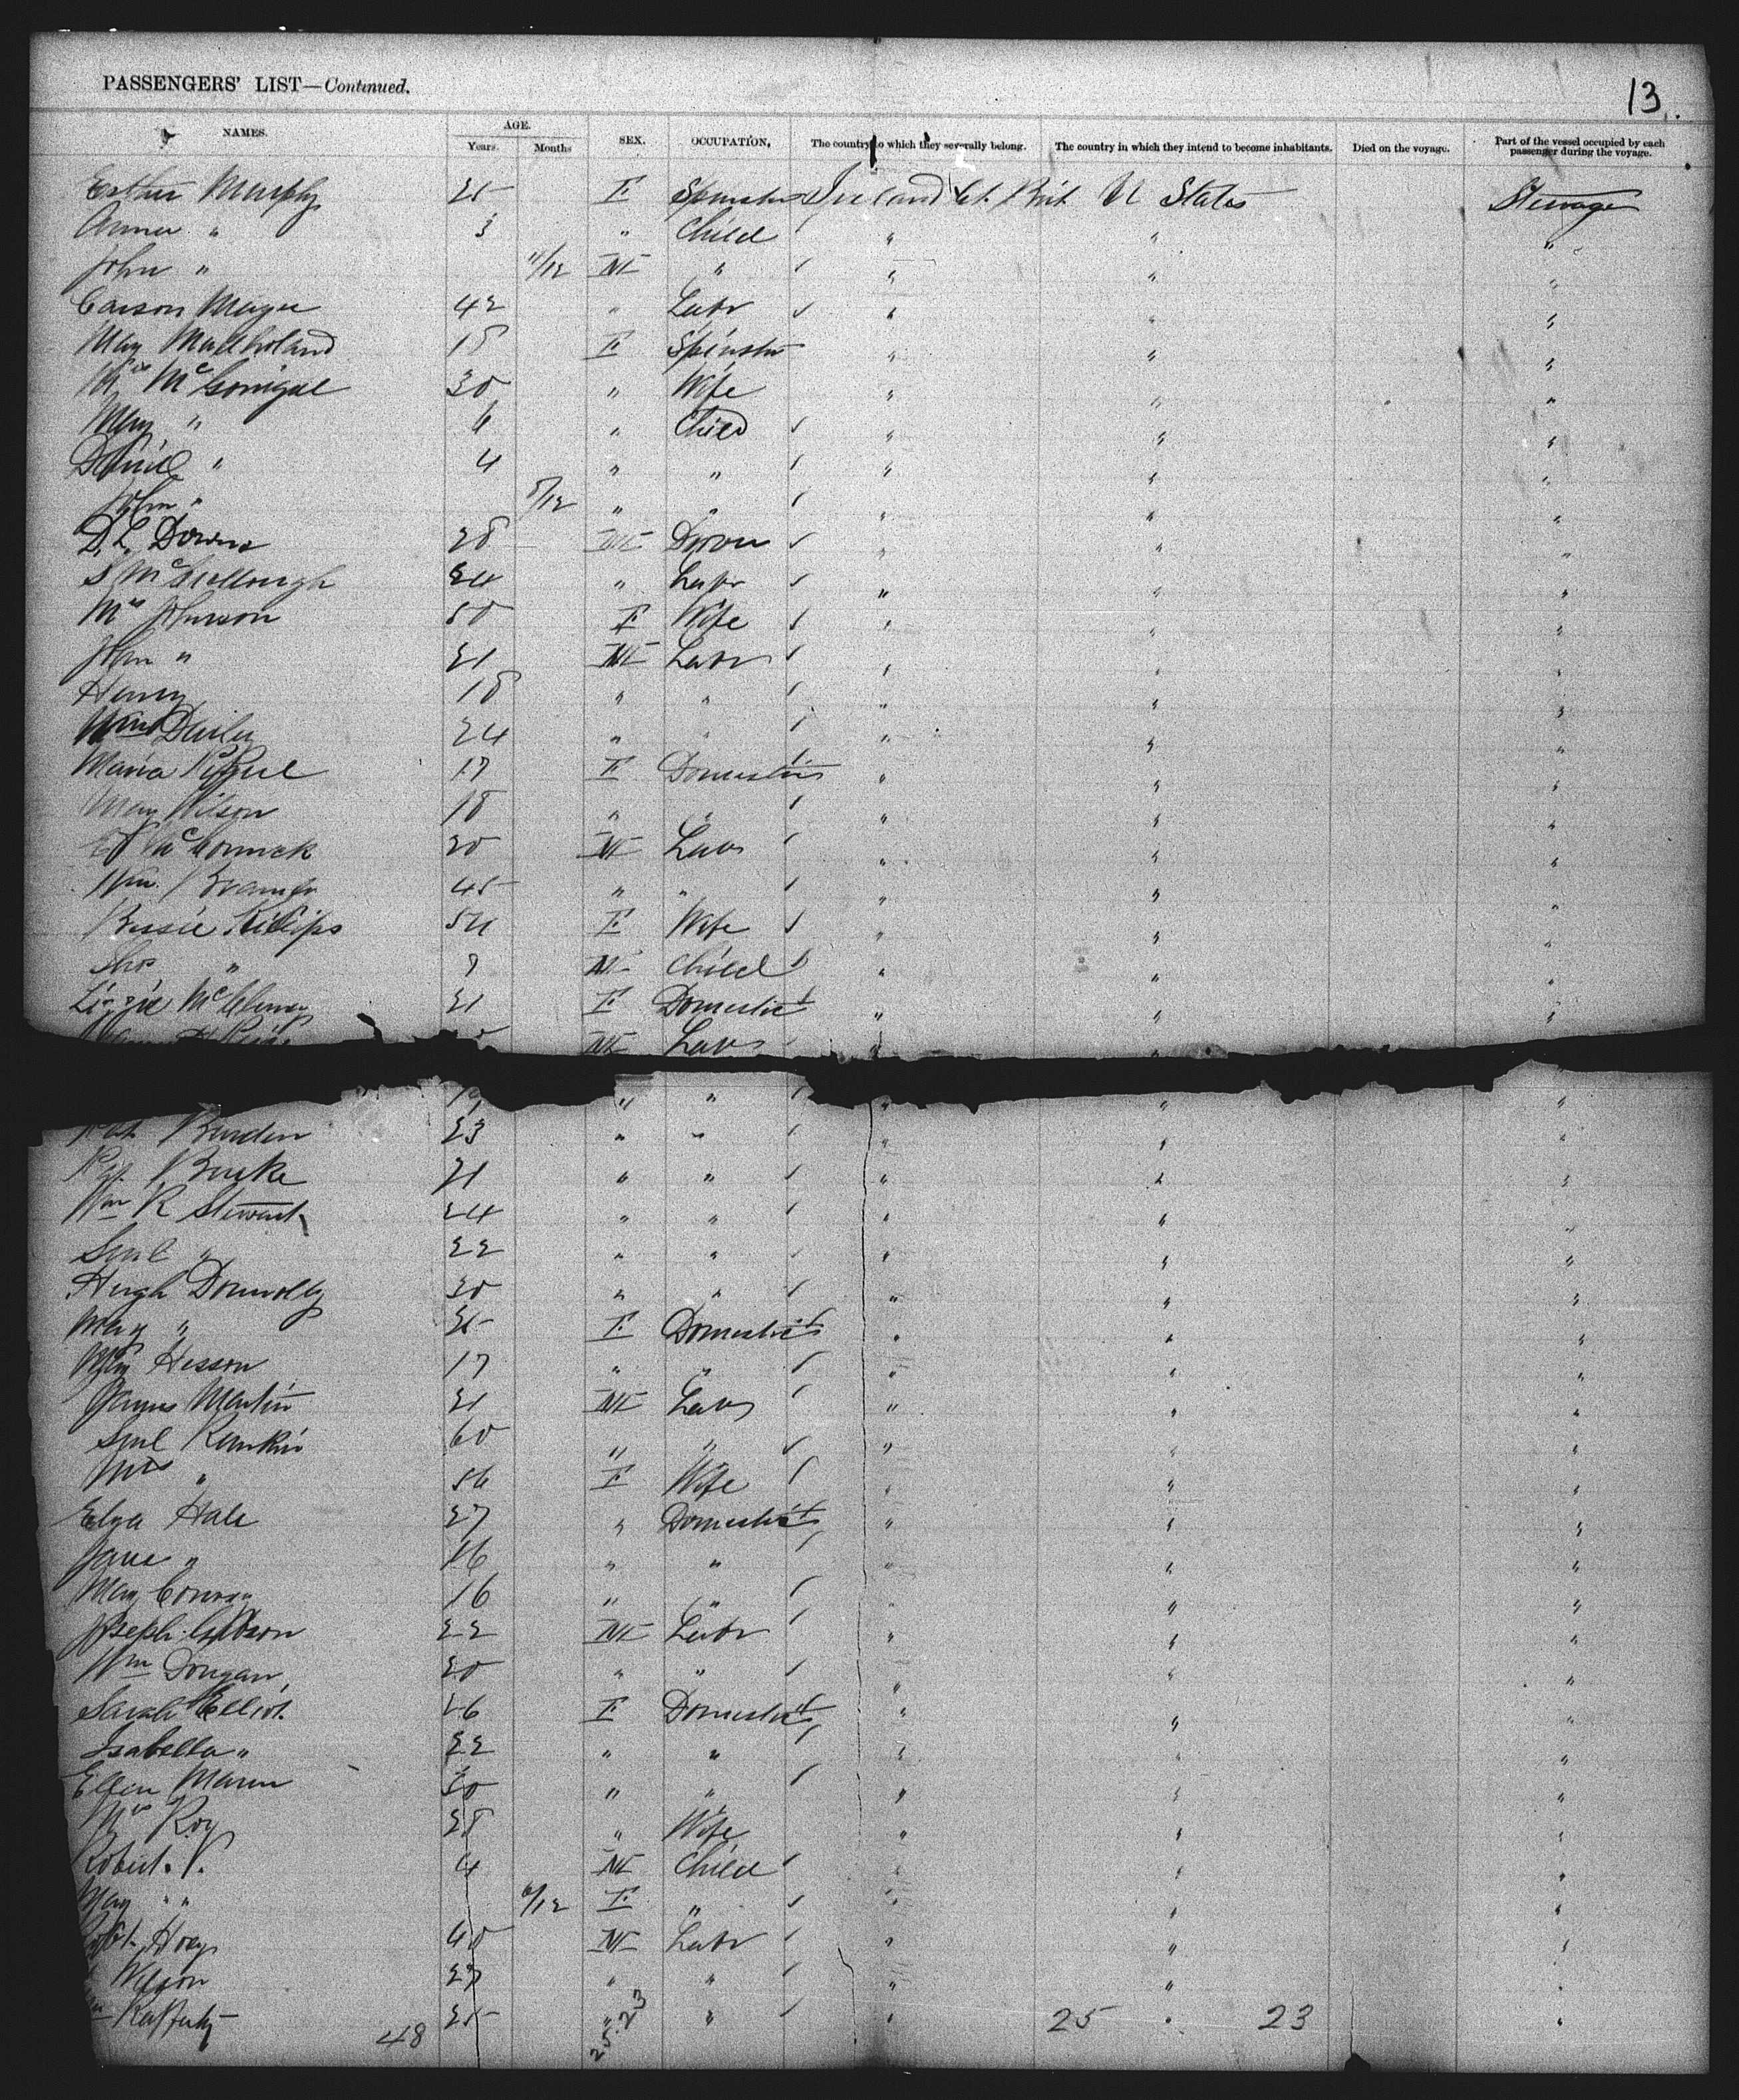 PASSENGERS' LIST—Continued.
13.
NAMES. AGE. Years. Months SEX. OCCUPATION. The country to which they severally belong. The country in which they intend to become inhabitants. Died on the voyage. Part of the vessel occupied by each passenger during the voyage.
Esther Murphy 25 F Spinster Ireland Gt. Brit. U States Steerage
Anna " 3 " Child " " "
John " 11/12 M " " " "
Carson Magee 42 " Labr " " "
May Mullholand 18 F Spinster " " "
Mrs McGonigal 30 " Wife " " "
Mary " 6 " Child " " "
Daniel " 4 " " " " "
John " 8/12 " " " " "
D. L. Downs 28 M " " "
S McCullough 24 " Labr " " "
Mrs Johnson 50 F Wife " " "
John " 21 M Labr " " "
Henry 18 " " " " "
Wm 24 " " " " "
Maria 17 F Domestic " " "
Mary Wilson 18 " " " " "
McCormick 20 M Labr " " "
Wm. 45 " " " " "
Bessie Killips 54 F Wife " " "
Thos " M Child " " "
Lizzie 21 F Domestic " " "
M Labr " "
19 " " " " "
Burden 23 " " " " "
Burke 21 " " " " "
Wm R Stewart 24 " " " " "
Saml " 22 " " " " "
Hugh Donnolly 30 " " " " "
Mary " 25 F Domestic " " "
Hesson 17 " " " " "
James Martin 21 M Labr " " "
Saml Rankin 60 " " " " "
Mrs " 56 F Wife " " "
Elza Hale 27 " Domestic " " "
Jane " 16 " " " " "
Mary Conway 16 " " " " "
Joseph Gibson 22 M Labr " " "
Wm Dougan 20 " " " " "
Sarah Elliot 26 F Domestic " " "
Isabella " 22 " " " " "
Ellen Mann 30 " " " " "
Mrs Roy 28 " Wife " " "
Robert. V. 4 M Child " " "
May " " 6/12 F " " " "
Robt. Hoey 40 M Labr " " "
Wilson 27 " " " " "
Rafferty 25 " " " " "
48 25.23 25 23